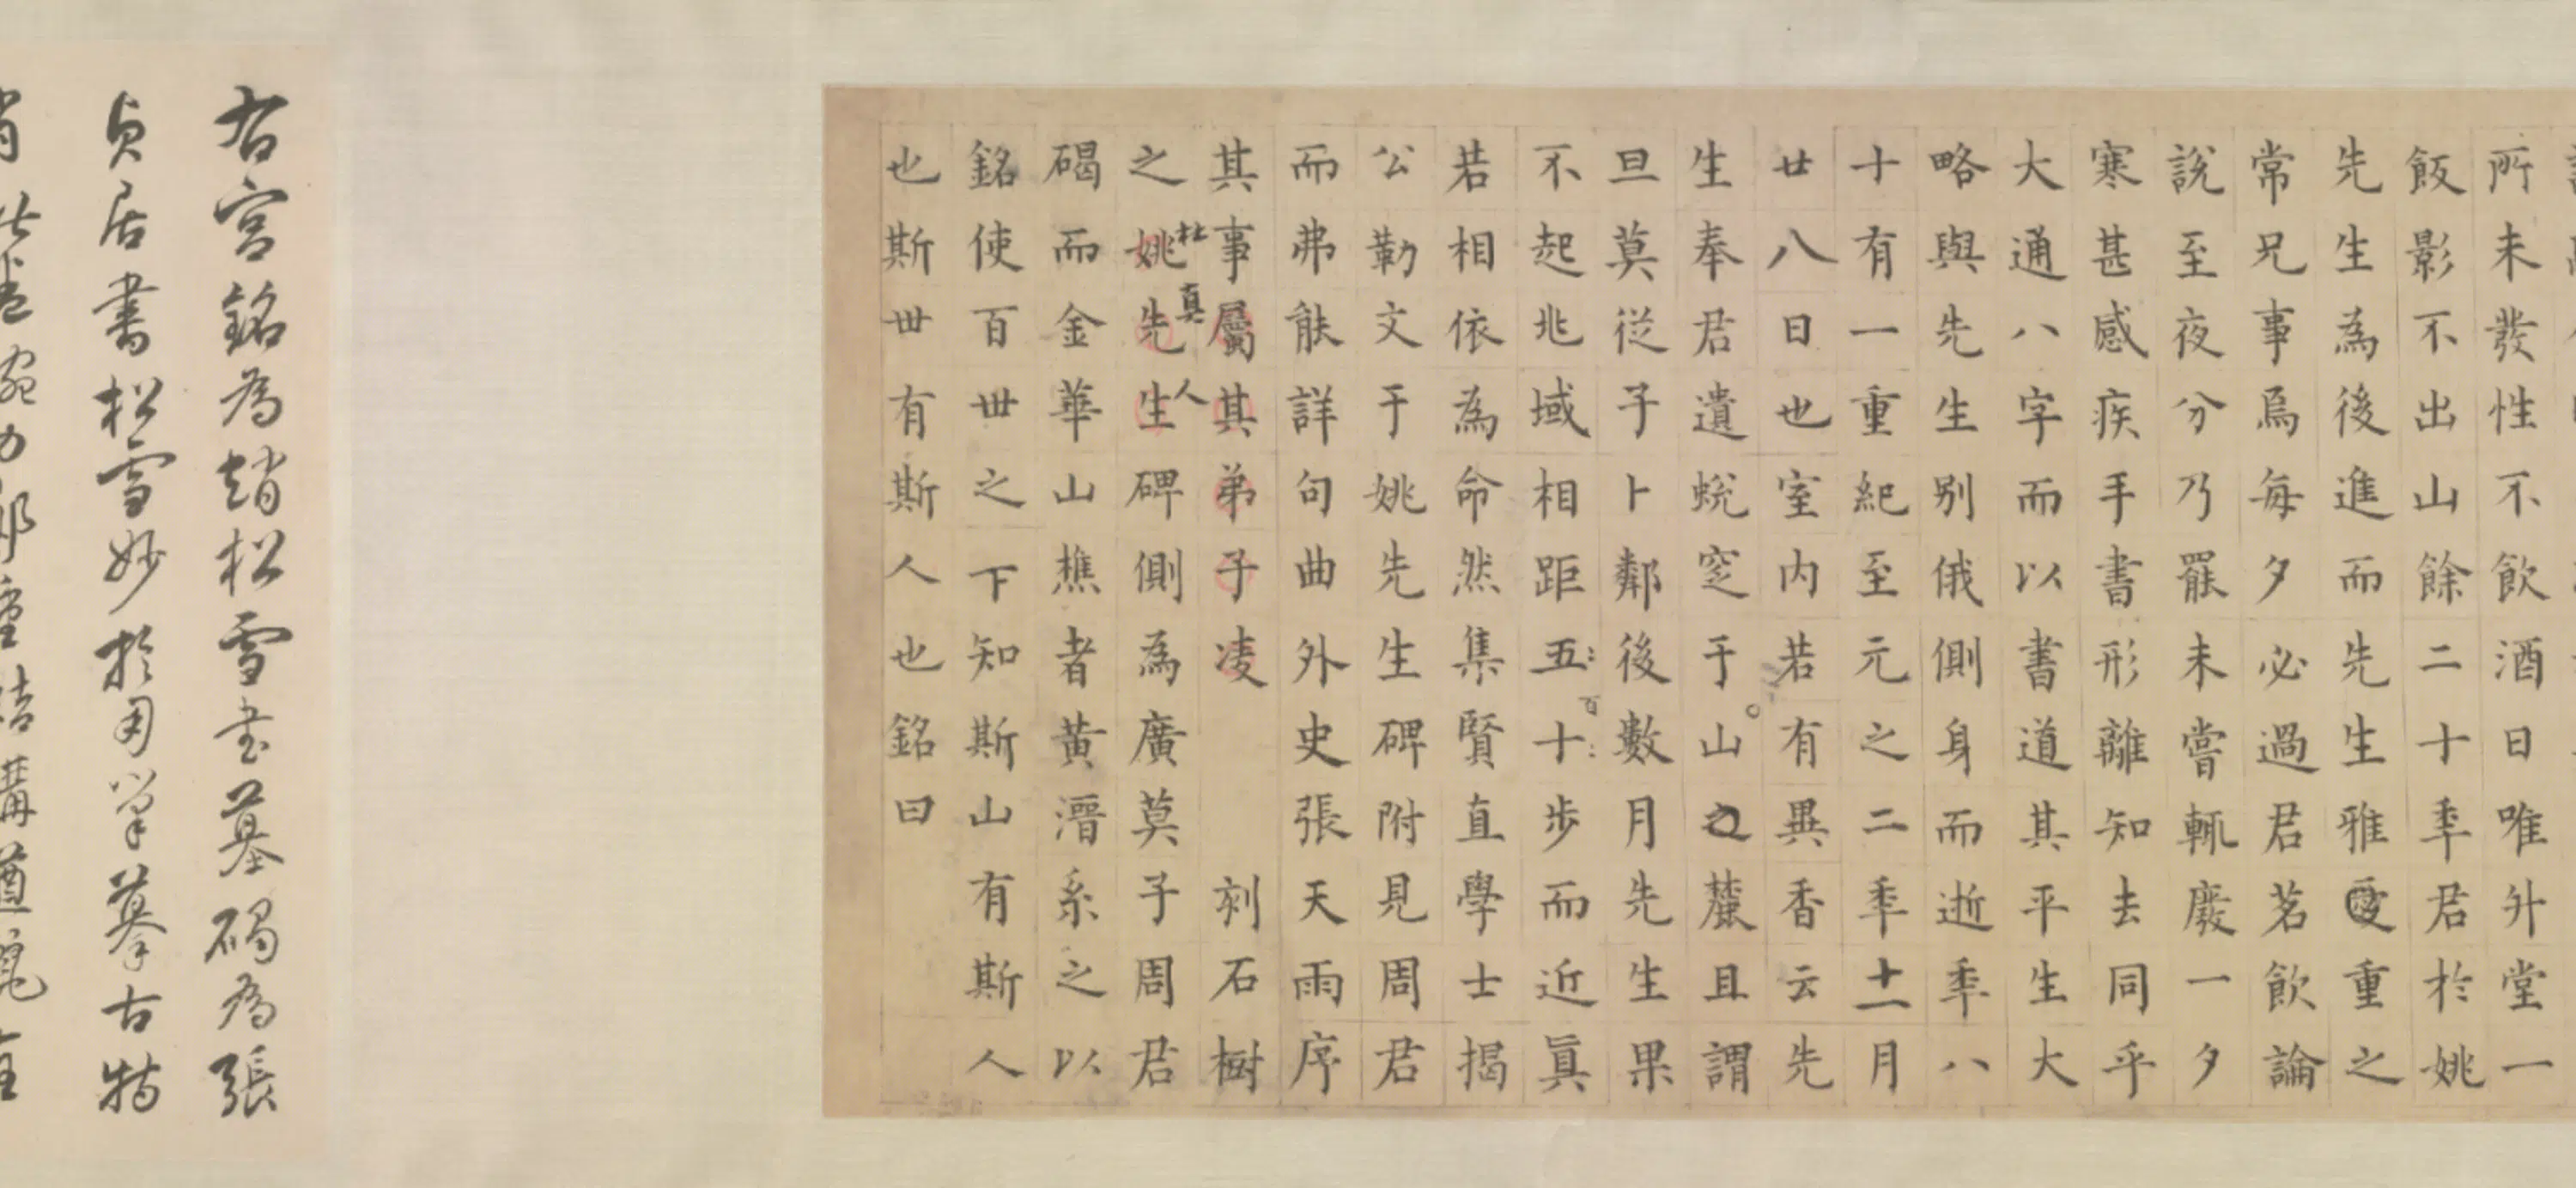 所未發性不飲酒日唯升堂一
飯影不出山餘二十秊君於姚
先生為後進而先生雅愛重之
常兄事焉每夕必過君茗飲論
說至夜分乃罷未嘗輒廢一夕
寒甚感疾手書形離知去同乎
大通八字而以書道其平生大
略與先生别俄側身而逝秊八
十有一重紀至元之二秊十一月
廿八日也室内若有異香云先
生奉君遺蛻窆于山之麓且謂
旦莫從子卜鄰後數月先生果
不起兆域相距五十步而近真
百
若相依為命然集賢直學士揭
公勒文于姚先生碑附見周君
而弗能詳句曲外史張天雨序
其事屬其弟子凌 刻石樹
杜真人
之姚先生碑側為廣莫子周君
碣而金華山樵者黄溍系之以
銘使百世之下知斯山有斯人
也斯世有斯人也銘曰
右宫銘為趙松雪書墓碣為張
貞居書松雪妙於用筆摹古特